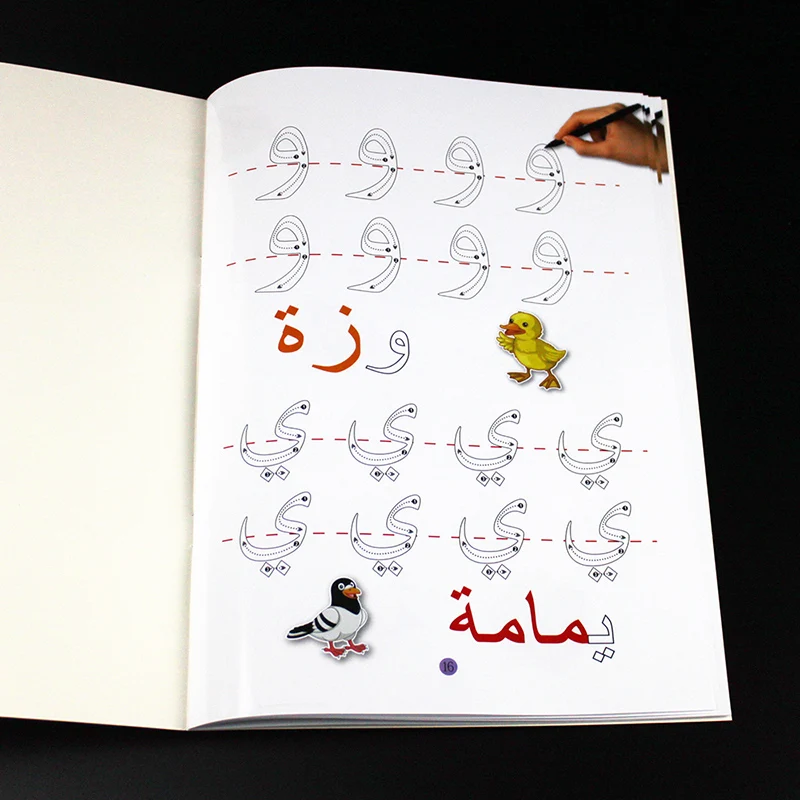 و و و و
و و و و
وزة
ي ي ي ي
ي ي ي ي
يمامة
16